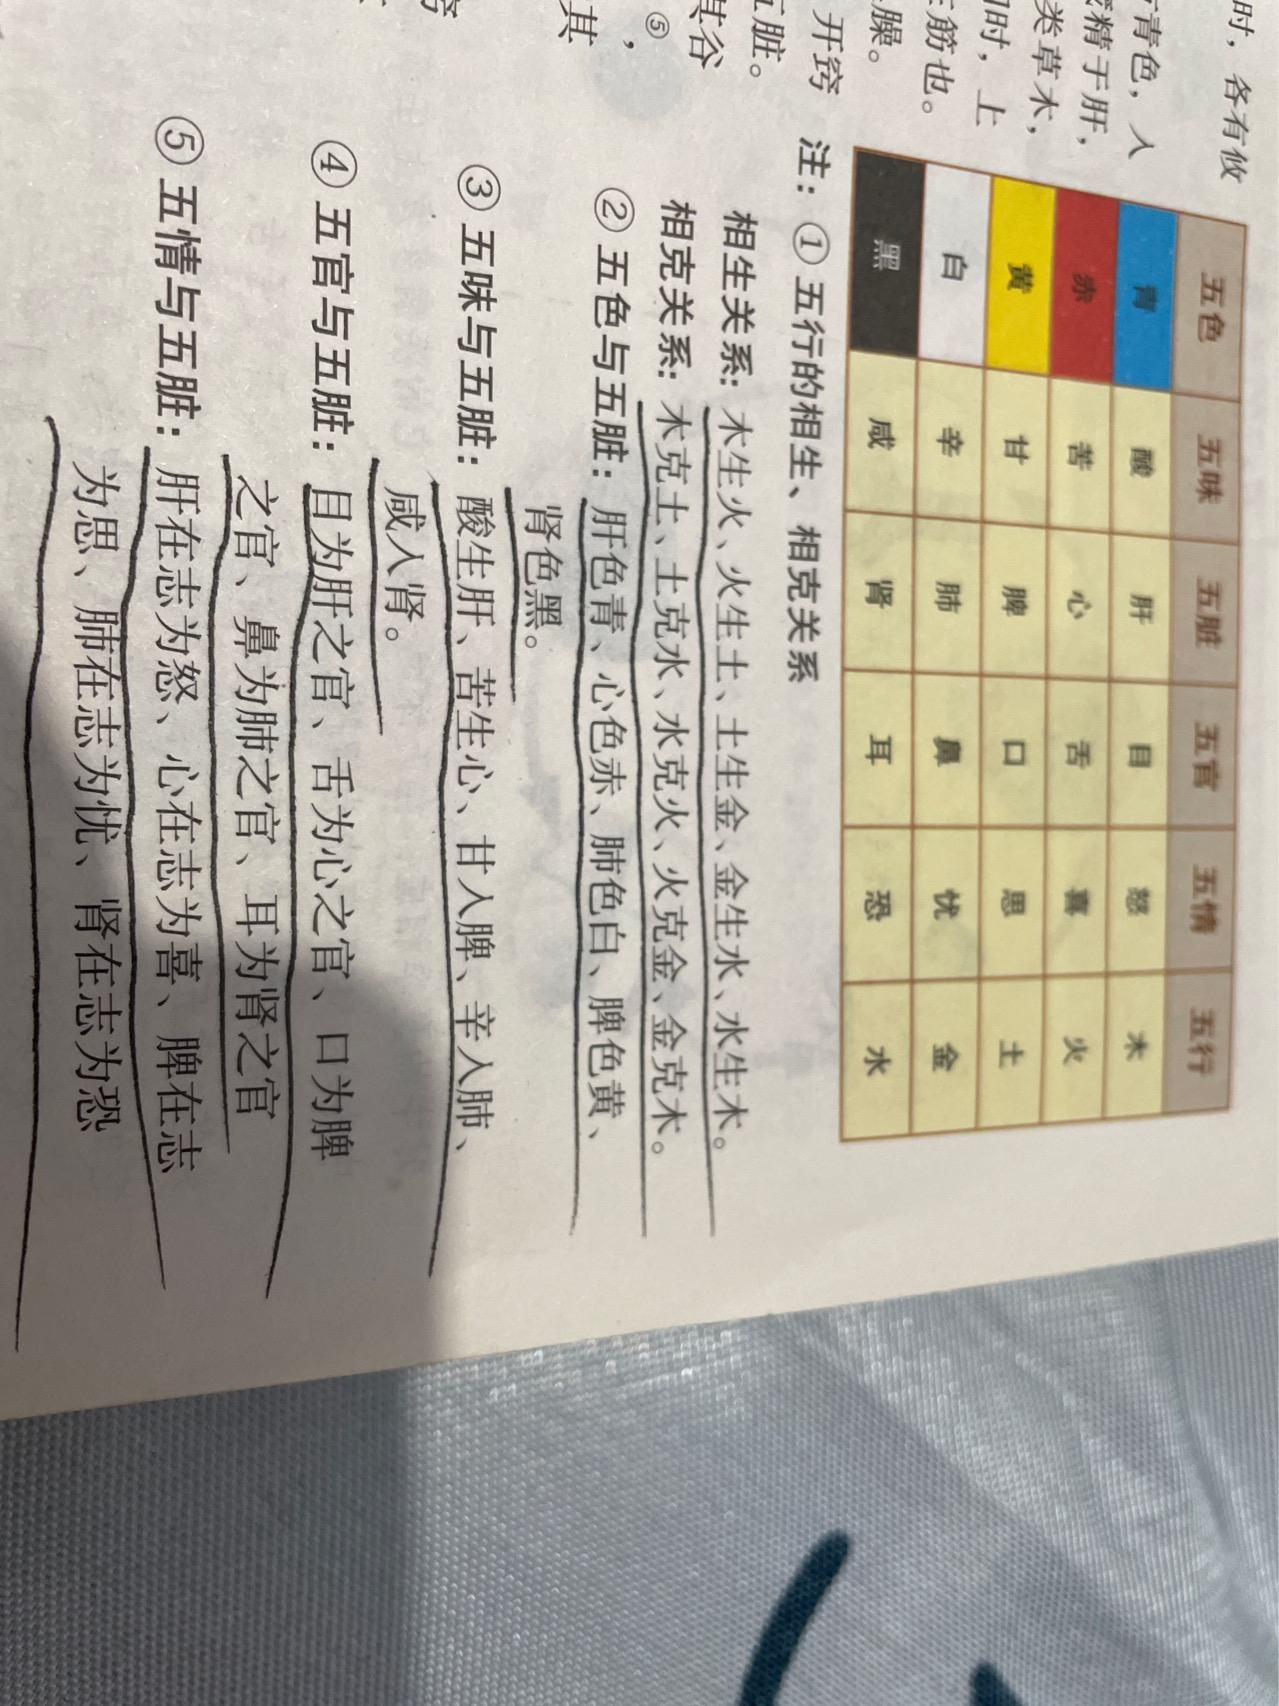 时，各有攸
青色，入
精于肝，
类草木，
时，上
筋也。
臊。
开窍
脏。
其谷
⑤，
其
窍
五色 五味 五脏 五官 五情 五行
青 酸 肝 目 怒 木
赤 苦 心 舌 喜 火
黄 甘 脾 口 思 土
白 辛 肺 鼻 忧 金
黑 咸 肾 耳 恐 水
注：①五行的相生、相克关系
相生关系：木生火、火生土、土生金、金生水、水生木。
相克关系：木克土、土克水、水克火、火克金、金克木。
②五色与五脏：肝色青、心色赤、肺色白、脾色黄、
肾色黑。
③五味与五脏：酸生肝、苦生心、甘入脾、辛入肺、
咸入肾。
④五官与五脏：目为肝之官、舌为心之官、口为脾
之官、鼻为肺之官、耳为肾之官
⑤五情与五脏：肝在志为怒、心在志为喜、脾在志
为思、肺在志为忧、肾在志为恐